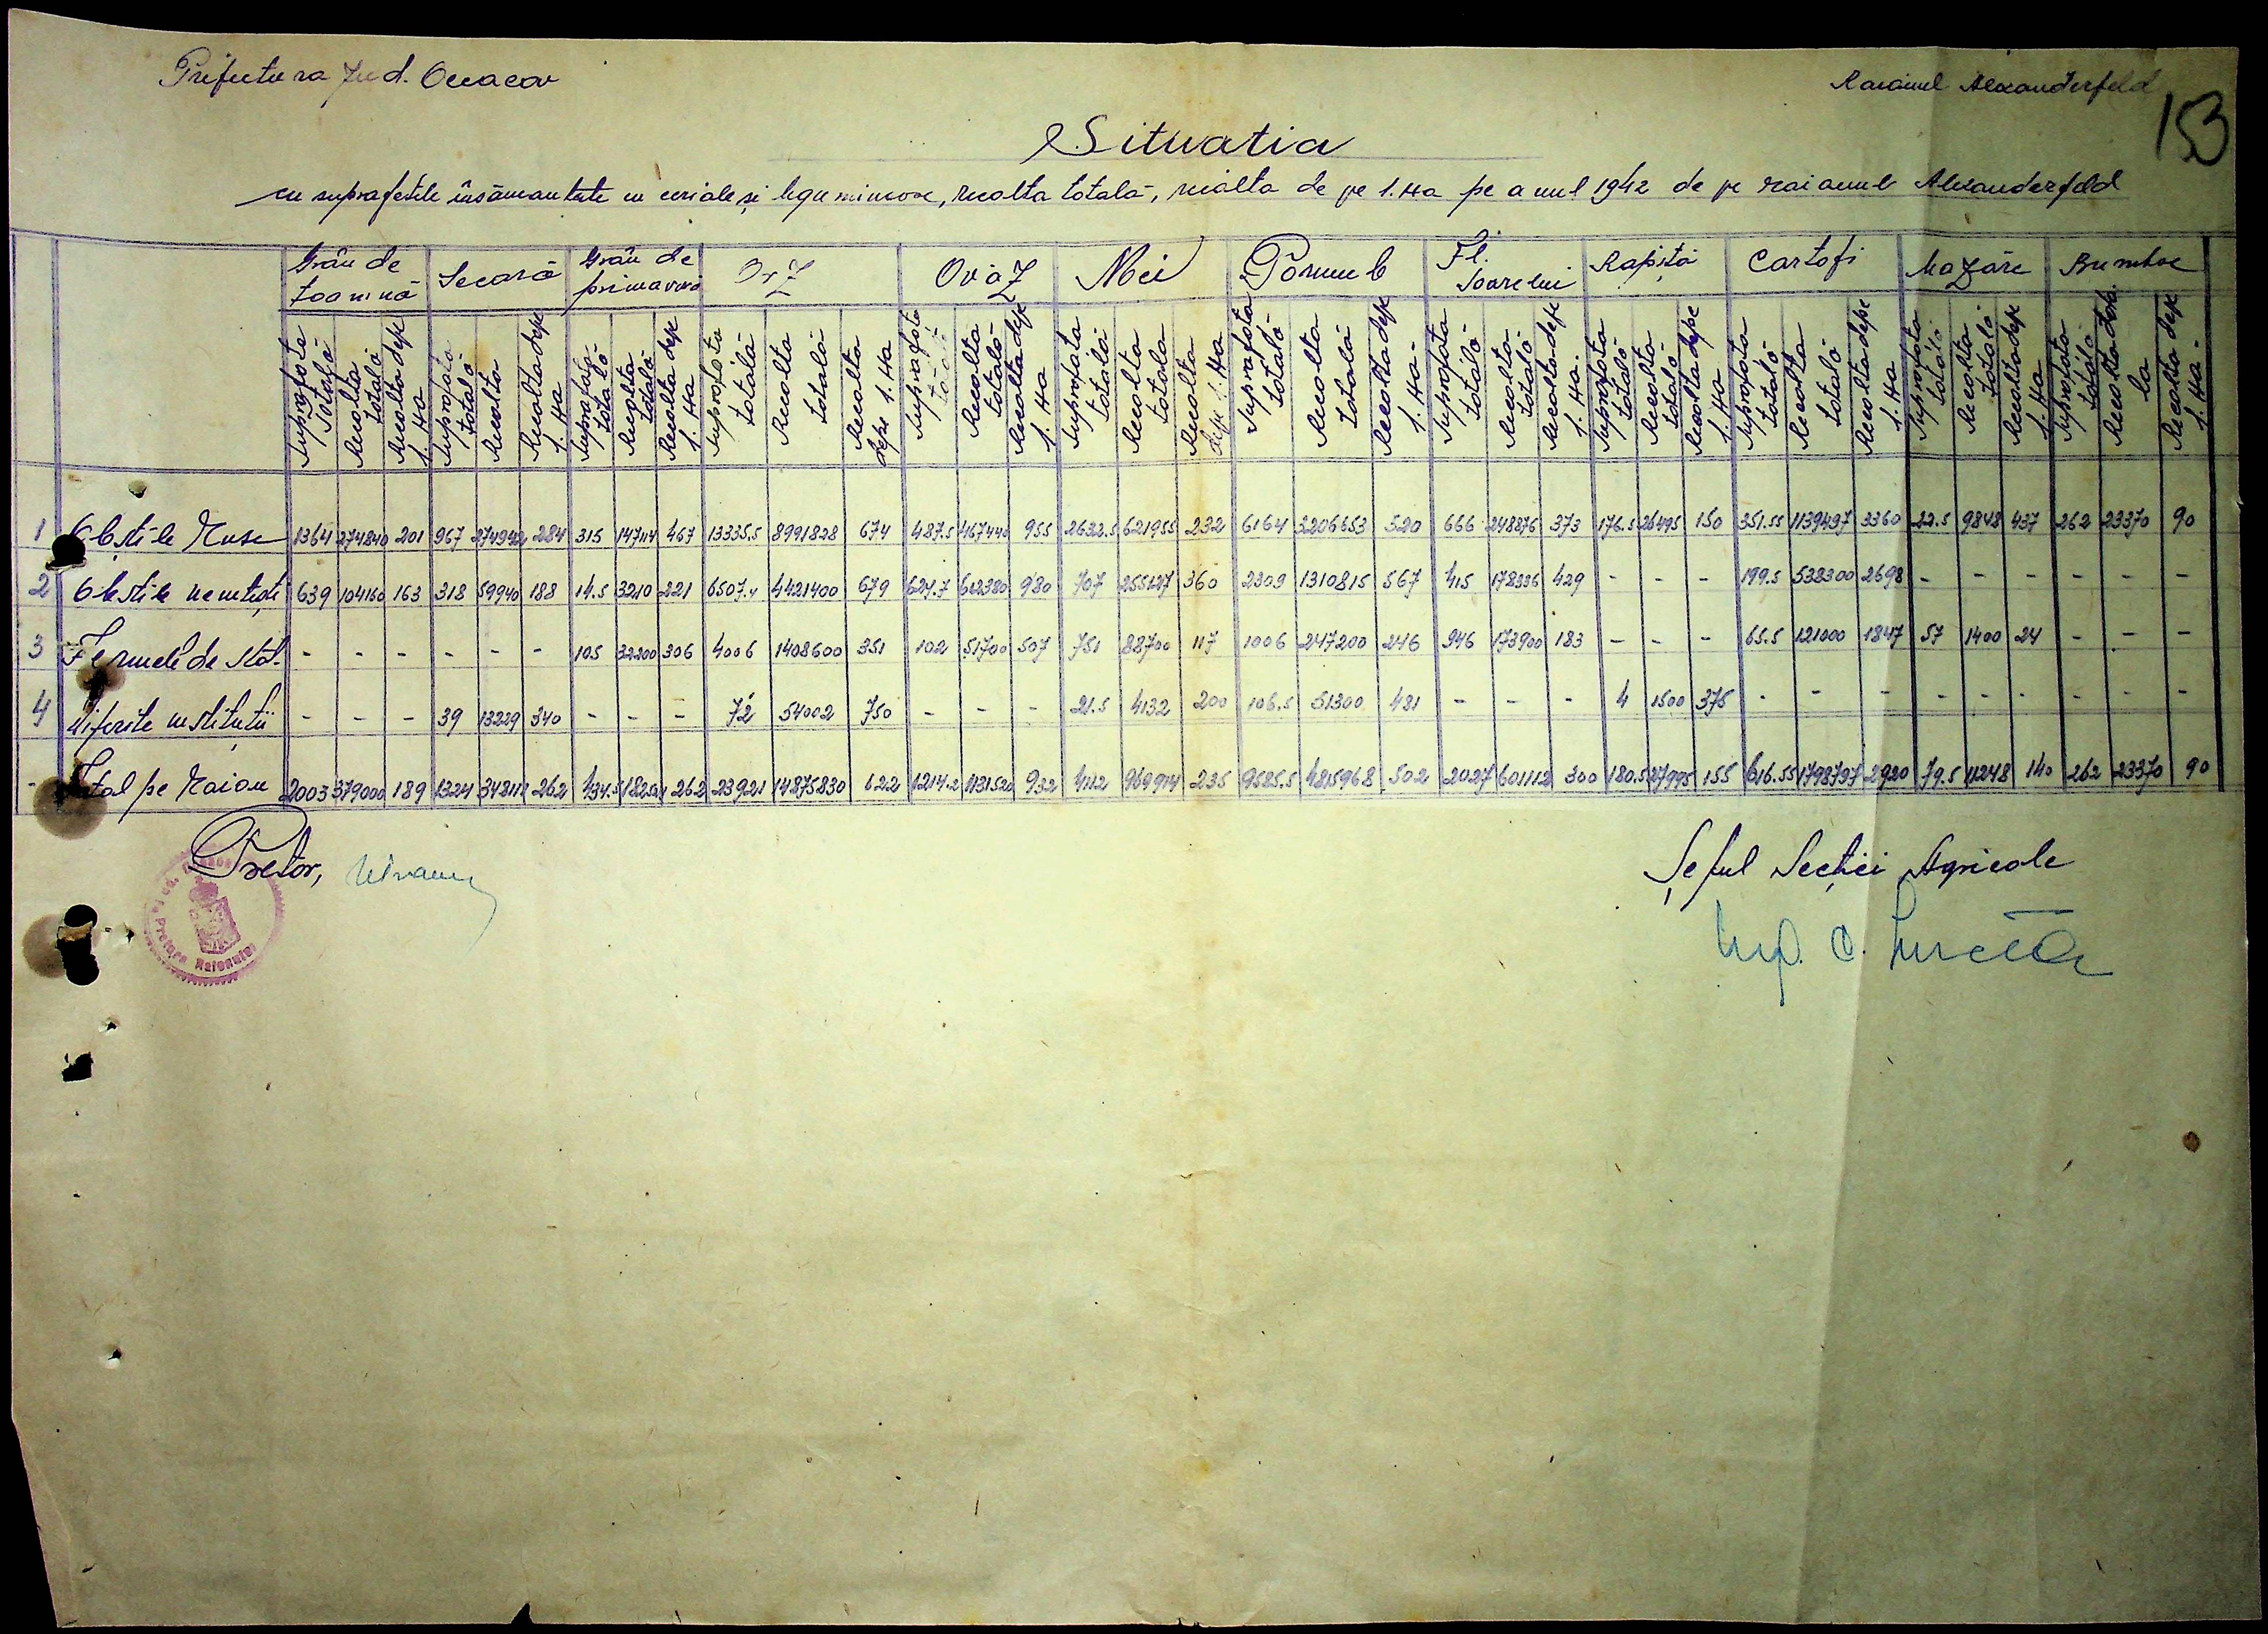 Prefectura Jud. Oceacov
Raionul Alexanderfeld
153
Situatia
cu suprafetele însămantate cu ceriale și leguminoase, recolta totală, recolta de pe 1.Ha pe anul 1942 de pe raionul Alexanderfeld
Grâu de toamnă | Secară | Grâu de primavară | Orz | Ovăz | Mei | Porumb | Fl. Soarelui | Rapiță | Cartofi | Mazăre | Bumbac
Suprafata totală | Recolta totală | Recolta depe 1.Ha | Suprafata totală | Recolta | Recolta depe 1.Ha | Suprafata totală | Recolta totală | Recolta depe 1.Ha | Suprafata totală | Recolta totală | Recolta depe 1.Ha | Suprafata totală | Recolta totală | Recolta depe 1.Ha | Suprafata totală | Recolta totala | Recolta depe 1.Ha | Suprafata totală | Recolta totală | Recolta depe 1.Ha- | Suprafata totală | Recolta totală | Recolta depe 1.Ha. | Suprafata totală | Recolta totală | Recolta depe 1.Ha- | Suprafata totală | Recolta totală | Recolta depe 1.Ha | Suprafata totală | Recolta totală | Recolta depe 1.Ha | Suprafata totală | Recolta | Recolta depe 1.Ha-
1 Obștile Ruse 1364 274840 201 967 274942 284 315 147114 467 13335.5 8991828 674 487.5 467440 955 2632.5 621955 232 6164 3206653 520 666 248876 373 176.5 26495 150 351.55 1139437 3360 22.5 9848 437 262 23370 90
2 Obstile nemtești 639 104160 163 318 59940 188 14.5 3210 221 6507.4 4421400 679 624.7 612380 980 707 255127 360 2309 1310815 567 415 178336 429 - - - 199.5 538300 2698 - - - - - -
3 Fermele de Stat. - - - - - - 105 32200 306 4006 1408600 351 102 51700 507 751 88700 117 1006 247200 246 946 173900 183 - - - 65.5 121000 1847 57 1400 24 - - -
4 Diferite institutii - - - 39 13229 340 - - - 72 54002 750 - - - 21.5 4132 200 106.5 51300 481 - - - 4 1500 375 - - - - - - - - -
- Total pe Raion 2003 379000 189 1324 348111 262 434.5 262 23921 14875830 622 1214.2 1131520 932 4112 969914 235 9585.5 4815968 502 2027 601112 300 180.5 27995 155 616.55 1798737 2920 79.5 11248 140 262 23370 90
Pretor,
Șeful Secției Agricole
Pretura Raionului